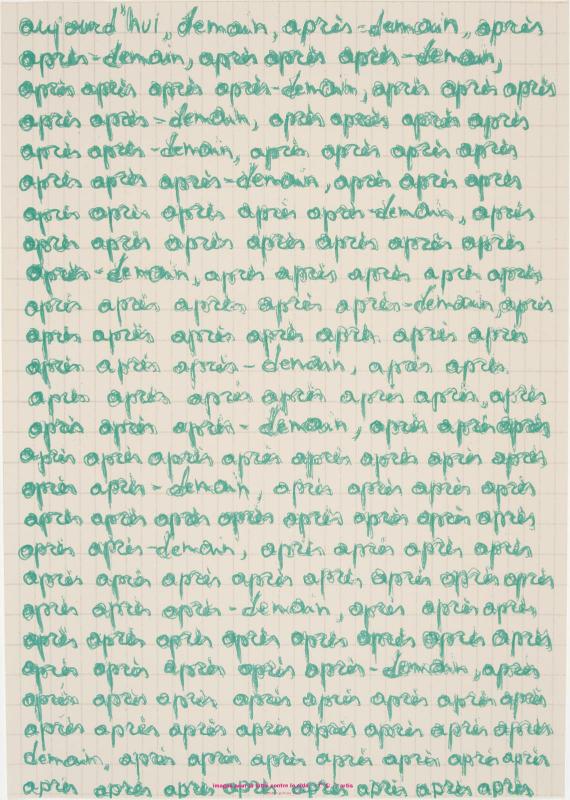 aujourd'hui, demain, après-demain, après
après-demain, après après après-demain,
après après après après-demain, après après après
après après-demain, après après après après
après après-demain, après après après après
après après après-demain, après après après
après après après après après-demain, après
après après après après après après après
après-demain, après après après après après
après après après après après-demain, après
après après après après après après après
après après après-demain, après après
après après après après après après après
après après après-demain, après après après
après après après après après après après après
après après-demain, après après après après
après après après après après après après après
après après-demain, après après après après
après après après après après après après après
après après après-demain, après après après
après après après après après après après après
après après après après après-demain, après
après après après après après après après après
après après après après après après après après
demain, après après après après après après après
après après après après après après après
images pour la lutte contre le sida